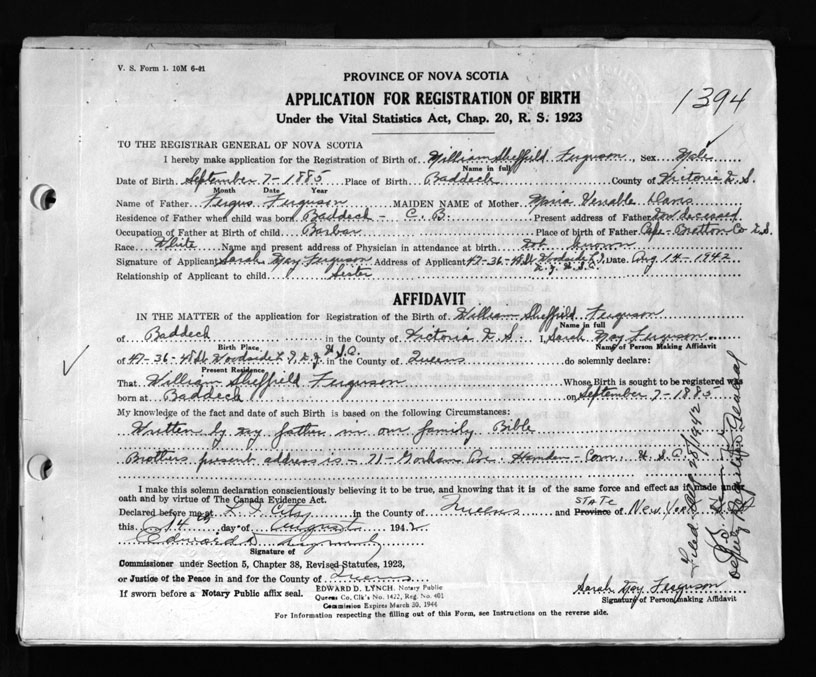 V. S. Form 1. 10M 6-41
PROVINCE OF NOVA SCOTIA
APPLICATION FOR REGISTRATION OF BIRTH
1394
Under the Vital Statistics Act, Chap. 20, R. S. 1923
TO THE REGISTRAR GENERAL OF NOVA SCOTIA
I hereby make application for the Registration of Birth of William Sheffield Ferguson, Sex Male
Name in full
Date of Birth September 7-1885 Place of Birth Baddeck County of Victoria N.S.
Month Date Year
Name of Father Fergus Ferguson MAIDEN NAME of Mother Maria Venable Davis
Residence of Father when child was born Baddeck - C. B. Present address of Father Now deceased
Occupation of Father at Birth of child Barber Place of Birth of Father Cape-Bretton Co N.S.
Race White Name and present address of Physician in attendance at birth Not Known
Signature of Applicant Sarah May Ferguson Address of Applicant 47-36-48 St Woodside L.I. N.Y. U.S.A. Date Aug 14-1942
Relationship of Applicant to child Sister
AFFIDAVIT
IN THE MATTER of the application for Registration of the Birth of William Sheffield Ferguson
Name in full
of Baddeck in the County of Victoria N.S. I, Sarah May Ferguson
Birth Place Name of Person Making Affidavit
of 47-36-48 St Woodside L.I. N.Y. U.S.A. in the County of Queens do solemnly declare:
Present Residence
That William Sheffield Ferguson Whose Birth is sought to be registered was
born at Baddeck on September 7-1885
My knowledge of the fact and date of such Birth is based on the following Circumstances:
Written by my father in our family Bible
Brothers present address is - 71-Gorham Ave. Hamden-Conn. U.S.A.
I make this solemn declaration conscientiously believing it to be true, and knowing that it is of the same force and effect as if made under
oath and by virtue of The Canada Evidence Act.
Declared before me at L. I. City in the County of Queens and Province STATE of New York
this 14th day of August 1942
Signature of
Commissioner under Section 5, Chapter 38, Revised Statutes, 1923,
or Justice of the Peace in and for the County of Queens
If sworn before a Notary Public affix seal.
EDWARD D. LYNCH, Notary Public
Queens Co. Clk's No. 1422, Reg. No. 401
Commission Expires March 30, 1944
Sarah May Ferguson
Signature of Person making Affidavit
For Information respecting the filling out of this Form, see Instructions on the reverse side.
Filed 1942
Deputy Registrar General